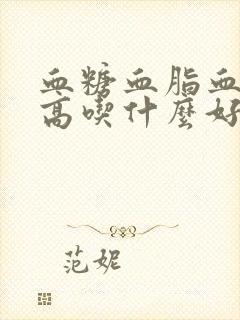 血糖血脂血
高喫什麼好
范妮